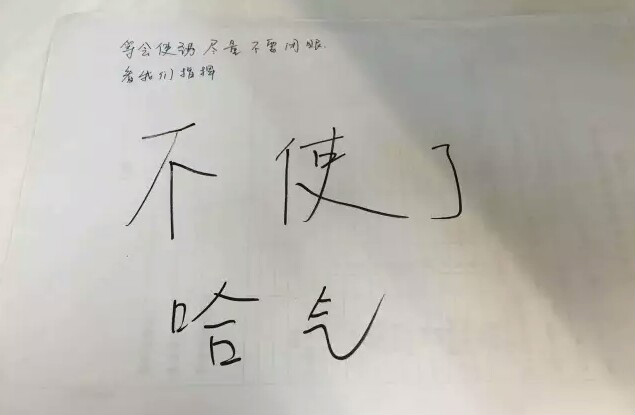 等会使 尽量不要闭眼
看我们指挥
不使了
哈气